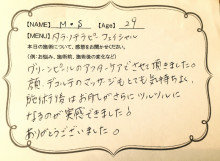 【NAME】 M・S 【Age】 29
【MENU】 グラノテラピー フェイシャル
本日の施術について、感想をお聞かせください。
(例:お悩み、施術前、施術後の変化など)
グリーンピールのアフターケアでさせて頂きました◎
顔、デコルテのマッサージもとても気持ち良く、
施術後はお肌がさらにツルツルに
なるのが実感できました!
ありがとうございました。